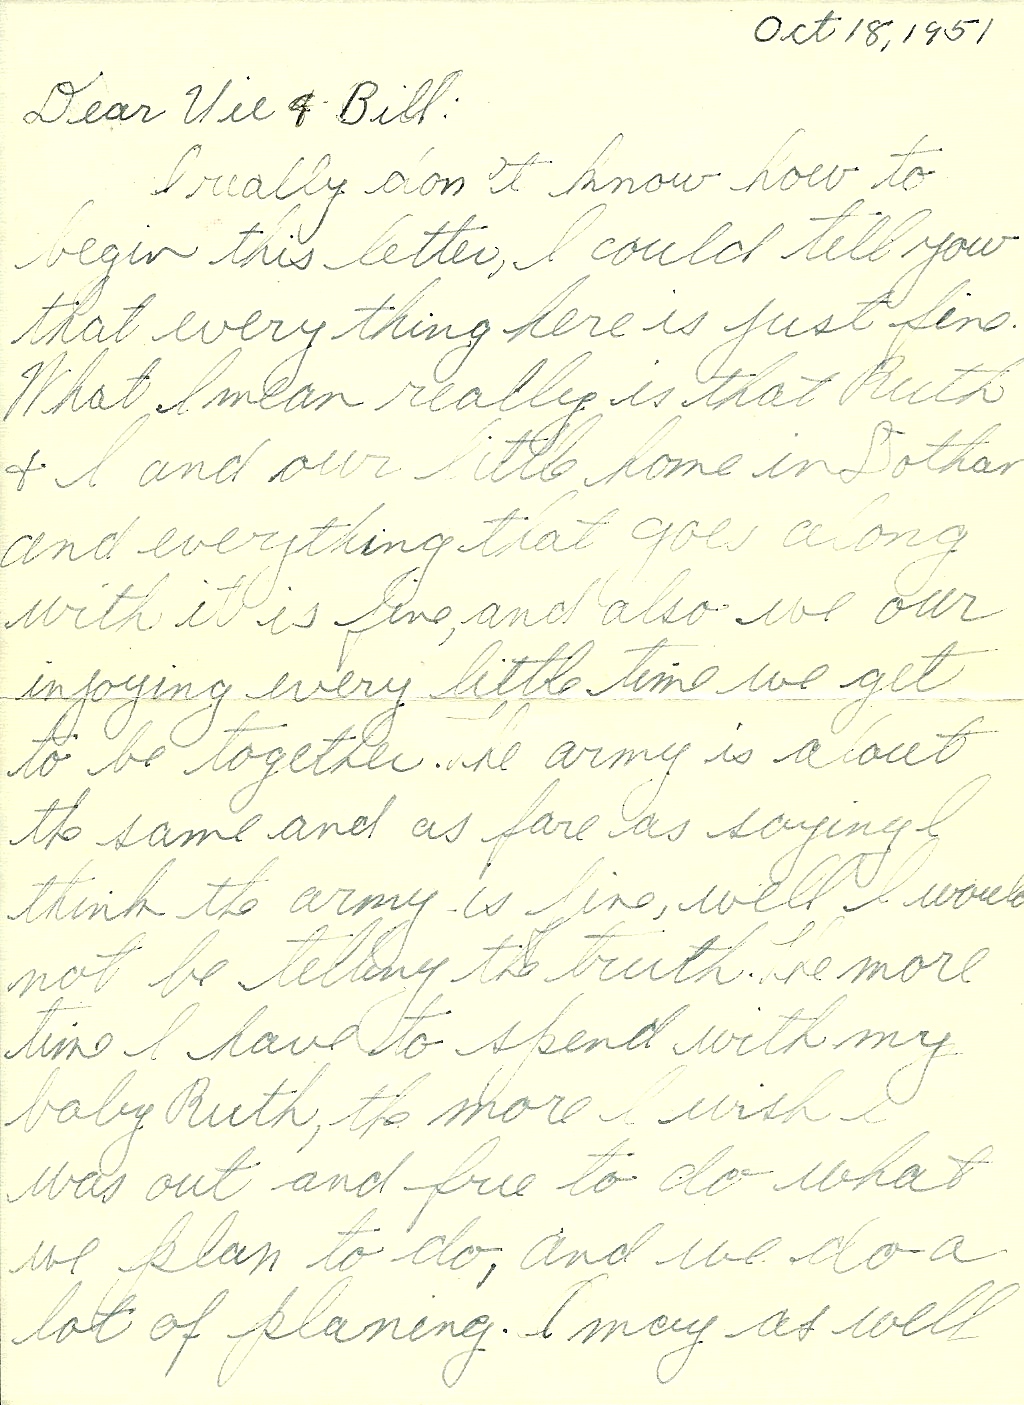 Oct 18, 1951
Dear Vie & Bill:
I really don't know how to
begin this letter, I could tell you
that every thing here is just fine.
What I mean really is that Ruth
& I and our little home in Dothan
and everything that goes along
with it is fine, and also we our
injoying every little time we get
to be together. The army is about
the same and as fare as saying I
think the army is fine, well I would
not be telling the truth. The more
time I have to spend with my
baby Ruth, the more I wish I
was out and free to do what
we plan to do, and we do a
lot of planing. I may as well